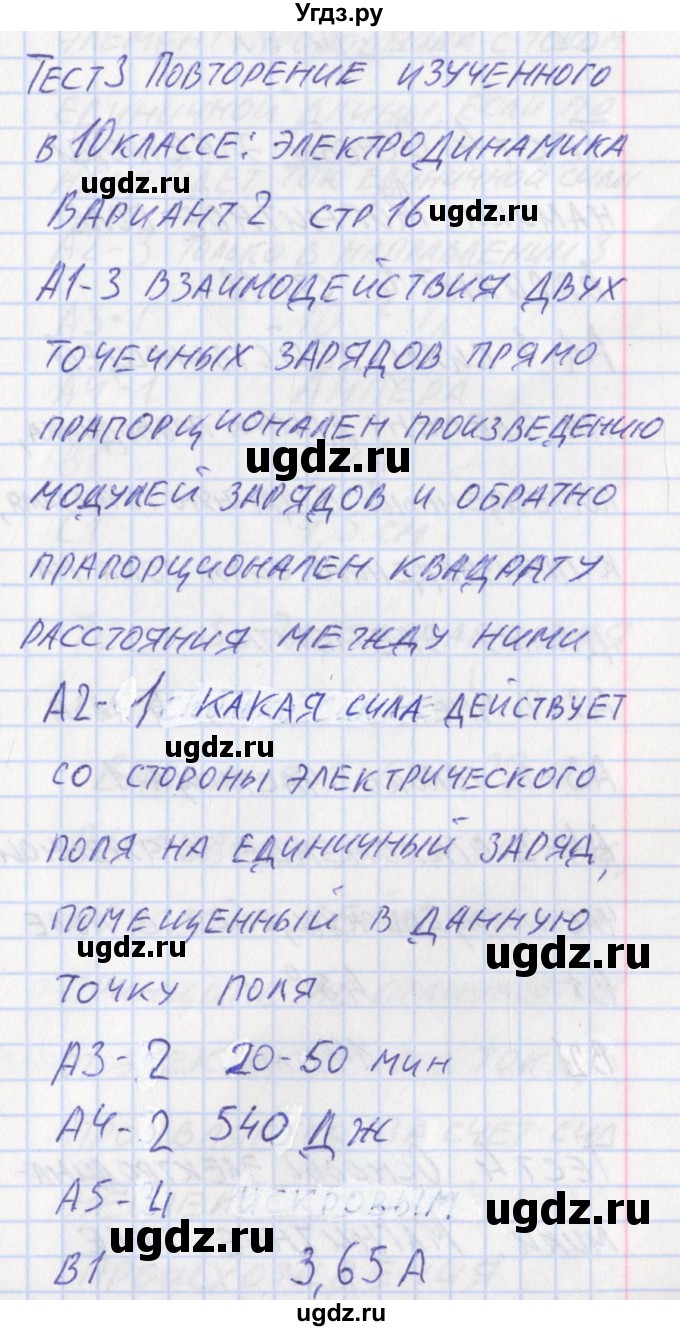 Угдз.ру
ТЕСТ 3 ПОВТОРЕНИЕ ИЗУЧЕННОГО
В 10 КЛАССЕ: ЭЛЕКТРОДИНАМИКА
ugdz.ru
ВАРИАНТ 2 СТР 16 ugdz.ru
А1-3 ВЗАИМОДЕЙСТВИЯ ДВУХ
ТОЧЕЧНЫХ ЗАРЯДОВ ПРЯМО
ПРАПОРЦИОНАЛЕН ПРОИЗВЕДЕНИЮ
ugdz.ru
МОДУЛЕЙ ЗАРЯДОВ И ОБРАТНО
ПРАПОРЦИОНАЛЕН КВАДРАТУ
РАССТОЯНИЯ МЕЖДУ НИМИ
А2-1 КАКАЯ СИЛА ДЕЙСТВУЕТ
ugdz.ru
СО СТОРОНЫ ЭЛЕКТРИЧЕСКОГО
ПОЛЯ НА ЕДИНИЧНЫЙ ЗАРЯД,
ПОМЕЩЕННЫЙ В ДАННУЮ
ugdz.ru ugdz.ru
ТОЧКУ ПОЛЯ
А3-2 20-50 МИН
А4-2 540 ДЖ
А5-4 ИСКРОВЫМ.
ugdz.ru ugdz.ru
В1 3,65 А
ugdz.ru